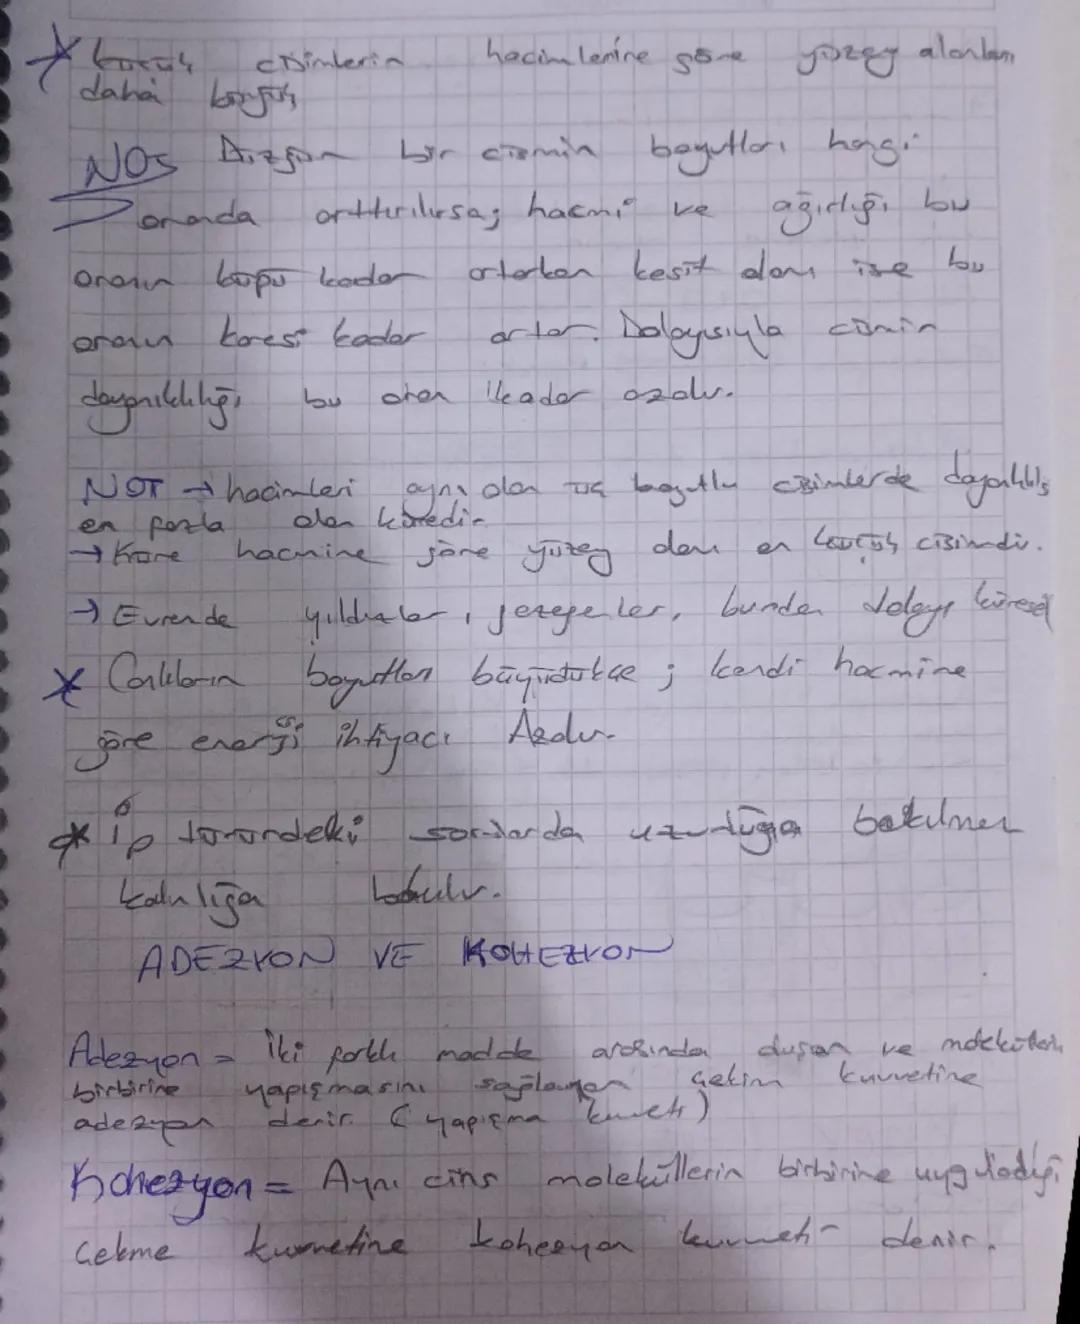 küçük cisimlerin hacimlerine göre yüzey alanları
daha büyük
NOT Düzgün bir cismin boyutları hangi
oranda arttırılırsa; hacmi ve ağırlığı bu
oranın küpü kadar artarken kesit alanı ise bu
oranın karesi kadar artar. Dolayısıyla cismin
dayanıklılığı bu oran kadar azalır.
NOT → hacimleri aynı olan üç boyutlu cisimlerde dayanıklılığı
en fazla olan küredir
→ Küre hacmine göre yüzey alanı en küçük cisimdir.
→ Evrende yıldızlar, gezegenler, bundan dolayı küresel
Canlıların boyutları büyüdükçe; kendi hacmine
göre enerji ihtiyacı Azalır.
ip türündeki sorularda uzunluğa bakılmaz
kalınlığa bakılır.
ADEZYON VE KOHEZYON
Adezyon = İki farklı madde arasında ve moleküllerin
birbirine yapışmasını sağlayan çekim kuvvetine
adezyon denir. (yapışma kuvveti)
Kohezyon = Aynı cins moleküllerin birbirine uyguladığı
Çekme kuvvetine kohezyon kuvveti denir.